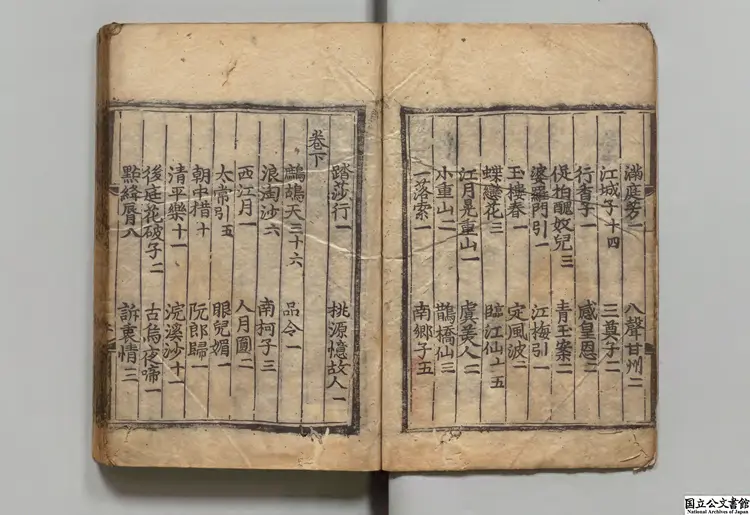 滿庭芳一 八聲甘州二
江城子十四 三奠子二
行香子一 感皇恩二
促拍醜奴兒三 青玉案二
婆羅門引一 江梅引一
玉樓春一 定風波二
蝶戀花三 臨江仙十五
江月晃重山一 虞美人二
小重山二 鵲橋仙三
一落索一 南鄉子五
踏莎行一 桃源憶故人一
卷下
鷓鴣天三十六 品令一
浪淘沙六 南柯子三
西江月一 人月圓二
太常引五 眼兒媚一
朝中措十 阮郎歸一
清平樂十一 浣溪沙十一
後庭花破子二 古烏夜啼一
點絳脣八 訴衷情三
国立公文書館
National Archives of Japan